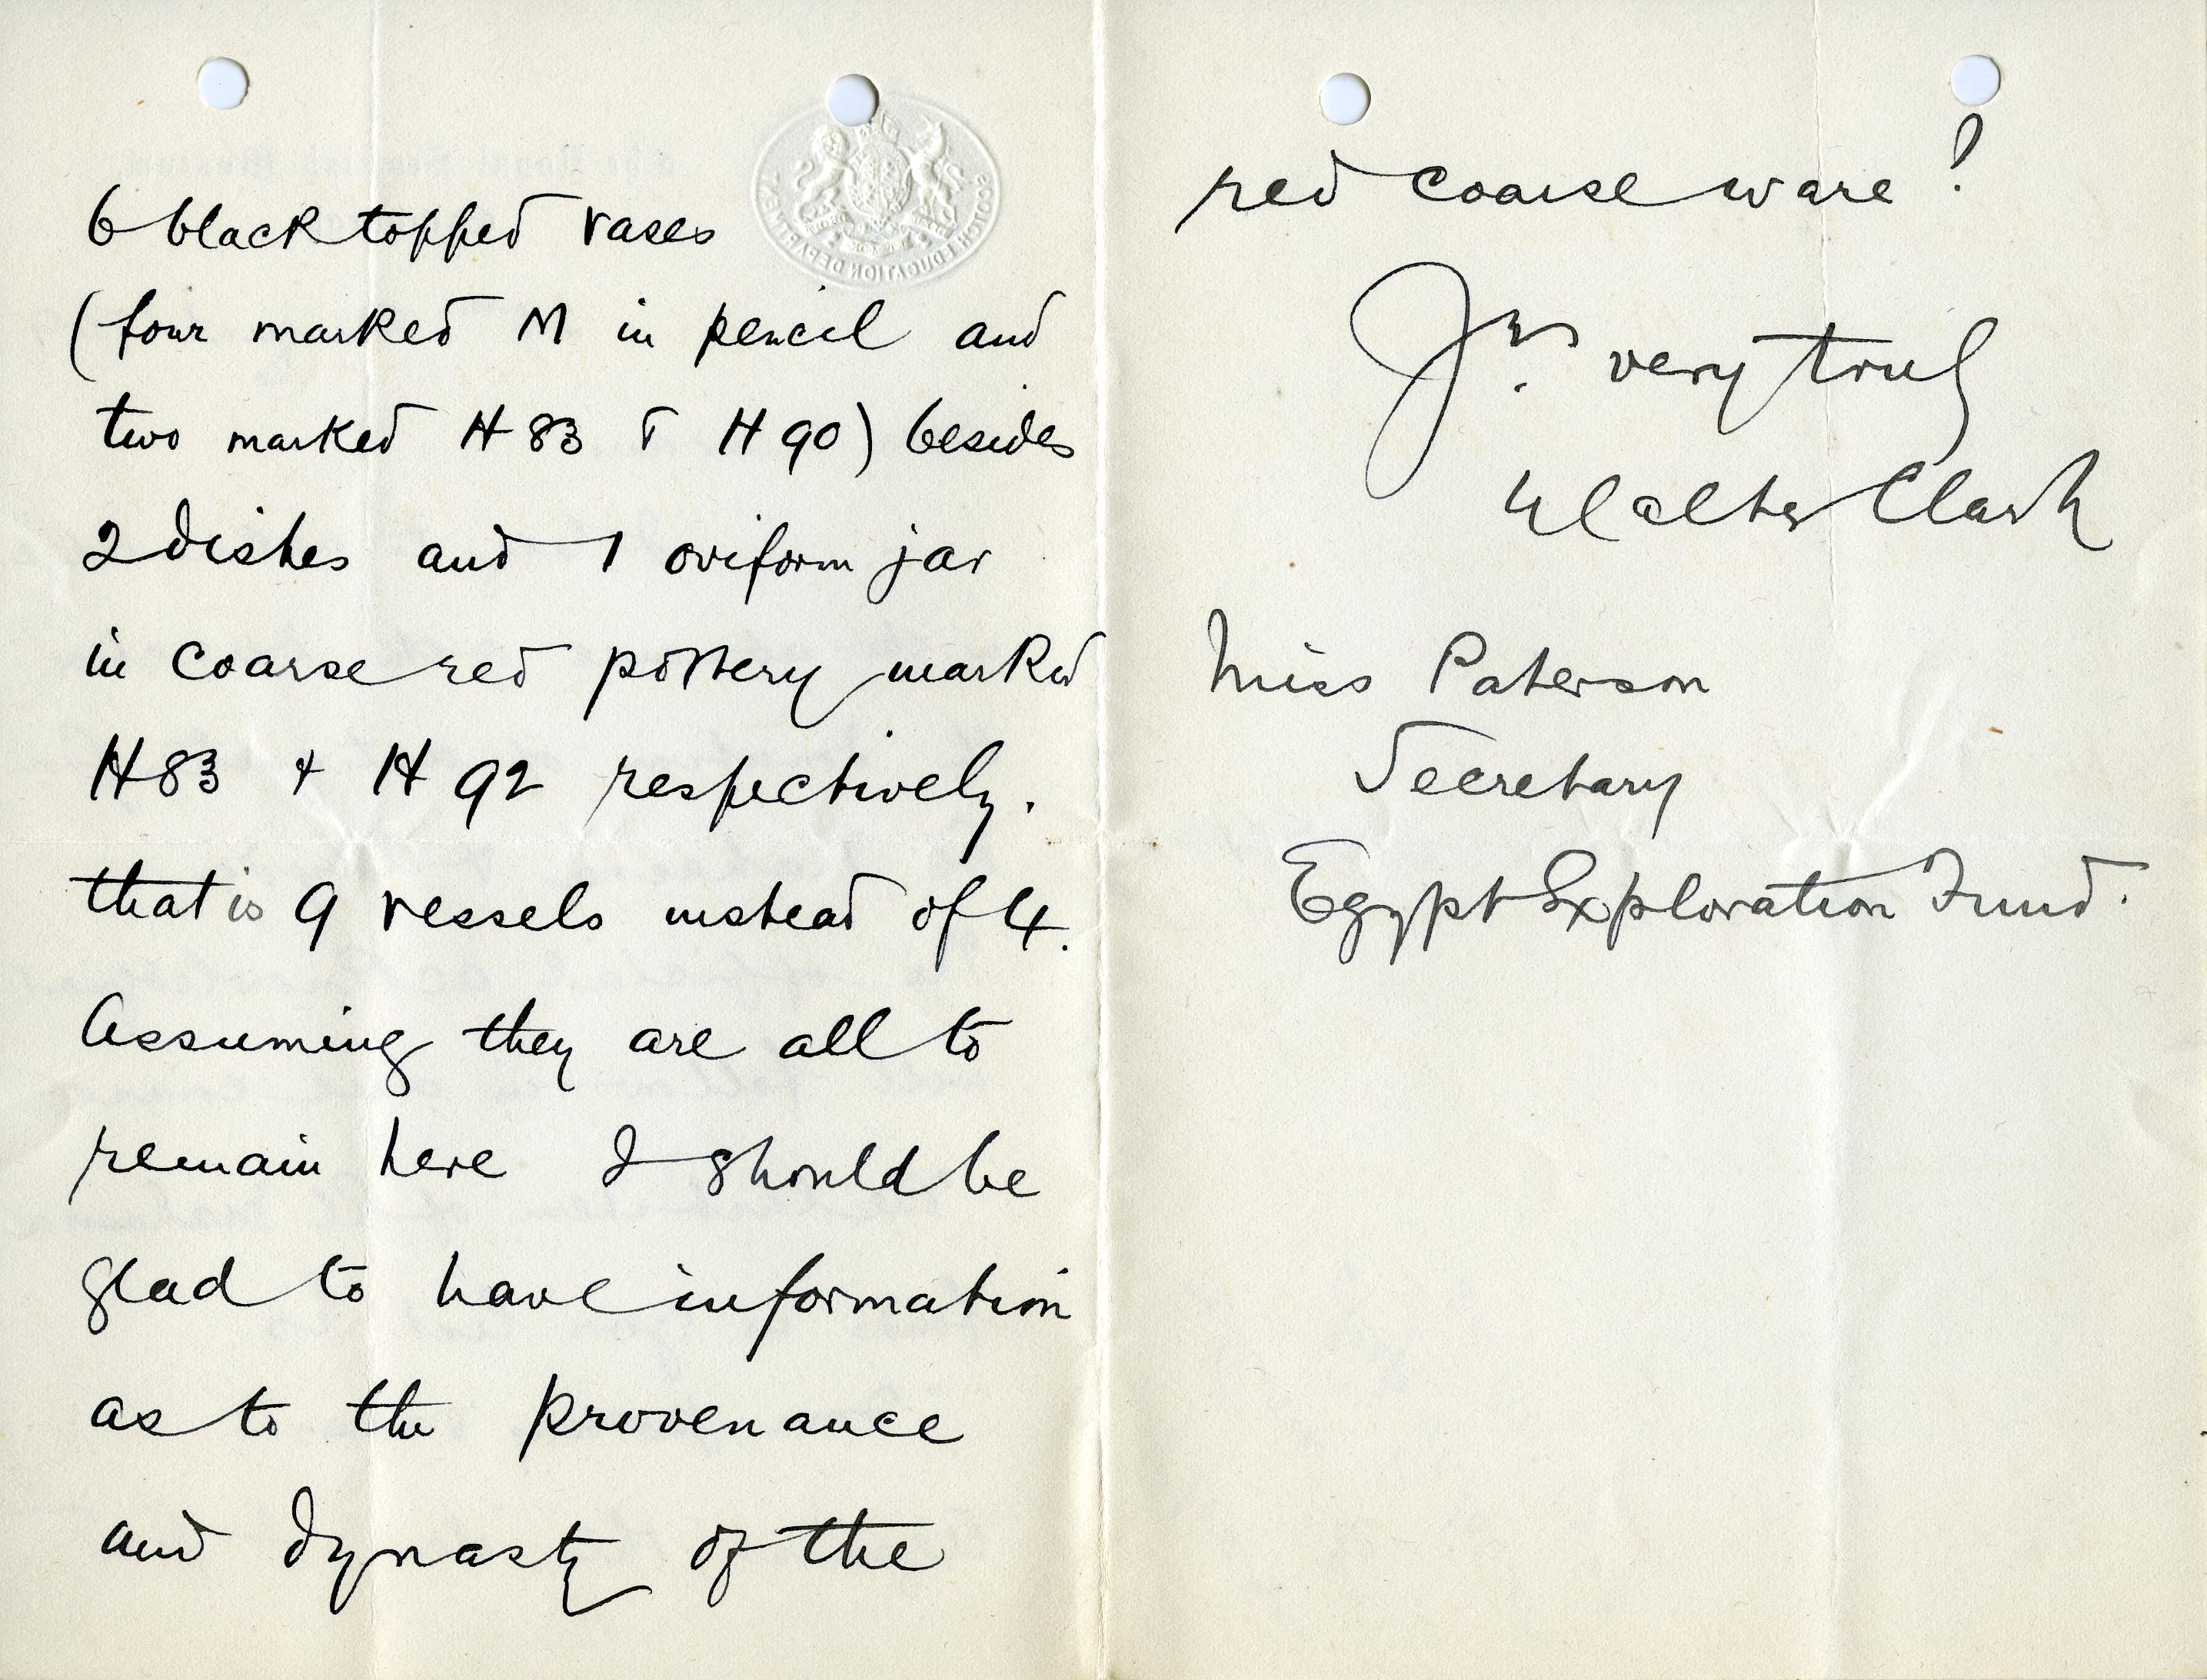 6 black topped vases
(four marked M in pencil and
two marked H 83 & H 90) besides
2 dishes and 1 oviform jar
in coarse red pottery marked
H83 + H 92 respectively.
that is 9 vessels instead of 4.
Assuming they are all to
remain here I should be
glad to have information
as to the provenance
and dynasty of the
red coarse ware?
Yrs. very truly
Walter Clark
Miss Paterson
Secretary
Egypt Exploration Fund.
SCOTCH EDUCATION DEPARTMENT